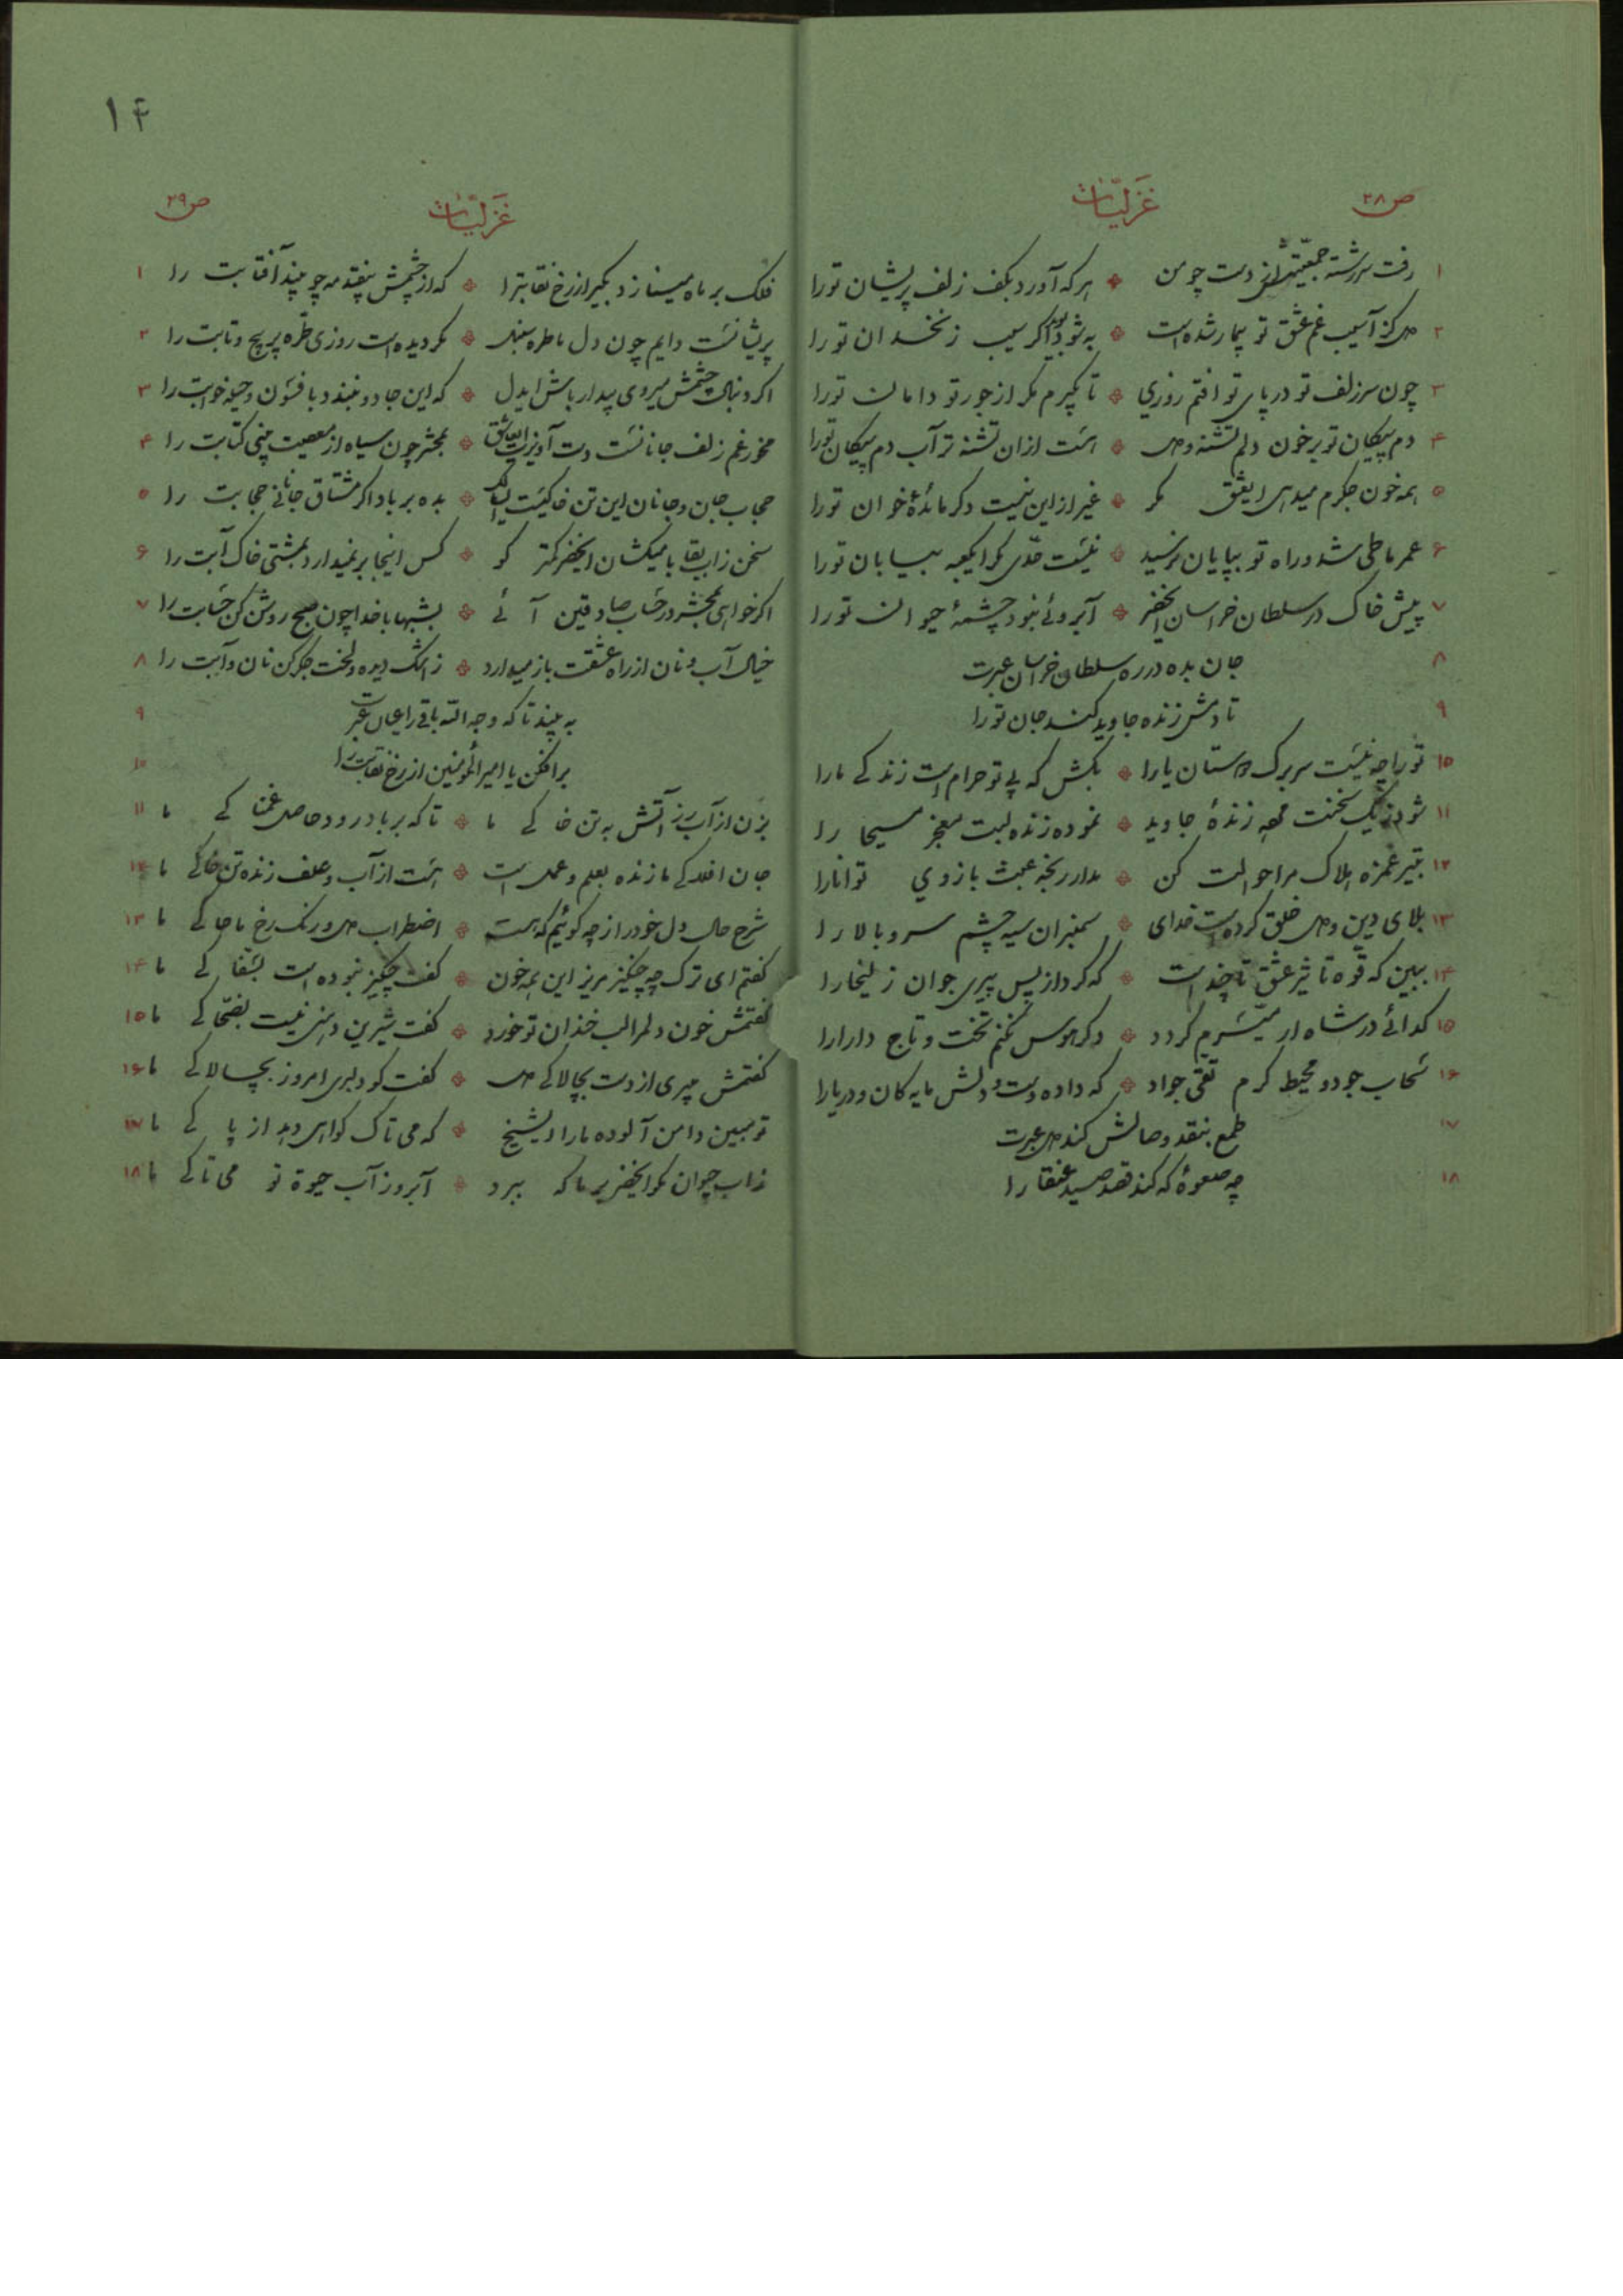 ۱۴
ص۲۸ غزلیّات
۱ رفت سررشته جمعیتش از دست چو من ٭ هر که آورد بکف زلف پریشان تو را
۲ دل کز آسیب غم عشق تو بیمار شده است ٭ به شود بوید اکر سیب زنخدان تو را
۳ چون سر زلف تو در پای تو افتم روزی ٭ تا بگیرم مگر از جور تو دامان تو را
۴ دم پیکان تو بر خون دلم تشنه و دل ٭ هست از آن تشنه تر آب دم پیکان تو را
۵ همه خون جکرم میدهی ایعشق مکر ٭ غیر از این نیست دکر مائدهٔ خوان تو را
۶ عمر ما طی شد و راه تو بپایان نرسید ٭ نیست حدّی مکر ایکعبه بیابان تو را
۷ پیش خاک در سلطان خراسان ایخضر ٭ آبروئی نبود چشمهٔ حیوان تو را
۸ جان بده در ره سلطان خراسان عبرت
۹ تا دمش زنده جاوید کند جان تو را
۱۰ تو را چه نیست سر برک دوستان یارا ٭ بکش که بی تو حرام است زندکی ما را
۱۱ شود ز یک سخنت مرده زندهٔ جاوید ٭ نموده زنده لبت معجز مسیحا را
۱۲ بتیر غمزه هلاک مرا حوالت کن ٭ مدار رنجه عبث بازوی توانا را
۱۳ بلای دین و دل خلق کرده است خدای ٭ سمنبران سیه چشم سرو بالا را
۱۴ ببین که قوه تاثیر عشق تا چند است ٭ که کرد از پس پیری جوان زلیخا را
۱۵ کدائی در شاه ار میسّرم کردد ٭ دکر هوس نکنم تخت و تاج دارا را
۱۶ سحاب جود و محیط کرم تقی جواد ٭ که داده دست و دلش مایه کان و دریا را
۱۷ طمع بنقد وصالش کند دل عبرت
۱۸ چه صعوهٔ که کند قصد صید عنقا را
غزلیّات ص۲۹
فلک بر ماه مینازد بکیر از رخ نقابت را ٭ که از چشمش بیفتد مه چو بیند آفتابت را ۱
پریشانست دایم چون دل ما طره سنبل ٭ مکر دیده است روزی طرّه پر پیچ و تابت را ۲
اکر دنبال چشمش میروی بیدار باش ایدل ٭ که این جادو نبندد با فسون و حیله خوابت را ۳
مخور غم زلف جانانست دست آویزت ایعاشق ٭ بمحشر چون سیاه از معصیت بینی کتابت را ۴
حجاب جان و جانان این تن خاکیست ٭ بده بر باد اکر مشتاق جانانی حجابت را ۵
سخن زاب بقا با میکشان ایخضر کمتر کو ٭ کس اینجا بر نمیدارد بمشتی خاک آبت را ۶
اکر خواهی بمحشر در حساب صادقین آئی ٭ بشبها با خدا چون صبح روشن کن حسابت را ۷
خیال آب و نان از راه عشقت باز میدارد ٭ ز اشک دیده و لخت جکر کن نان و آبت را ۸
به بیند تا که وجه الله باقی را عیان عبرت ۹
برافکن یا امیرالمؤمنین از رخ نقابت را ۱۰
بزن از آب رز آتش به تن خاکی ما ٭ تا که بر باد رود حاصل غمناکی ما ۱۱
جان افلاکی ما زنده بعلم و عمل است ٭ هست از آب و علف زنده تن خاکی ما ۱۲
شرح حال دل خود را ز چه کوئیم که هست ٭ اضطراب دل و رنک رخ ما حاکی ما ۱۳
کفتم ای ترک چه چنکیز مریز این همه خون ٭ کفت چنکیز نبوده است بسفاکی ما ۱۴
کفتمش خون دلم را لب خندان تو خورد ٭ کفت شیرین دهنی نیست بضحّاکی ما ۱۵
کفتمش میبری از دست بچالاکی دل ٭ کفت کو دلبری امروز بچالاکی ما ۱۶
تو مبین دامن آلوده ما را ایشیخ ٭ که می تاک کواهی دهد از پاکی ما ۱۷
زاب حیوان مکو ایخضر بر ما که ببرد ٭ آبرو ز آب حیوة تو می تاکی ما ۱۸